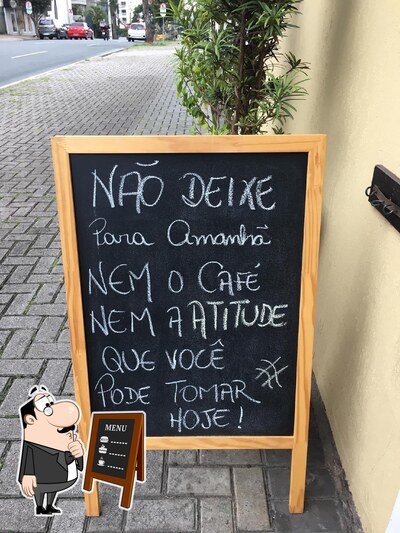 NÃO DEIXE
Para Amanhã
NEM O CAFÉ
NEM A ATITUDE
QUE VOCÊ
PODE TOMAR
HOJE!
MENU